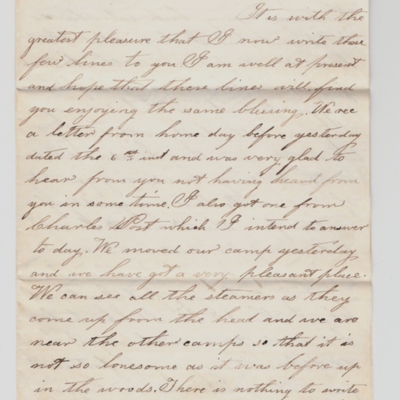 It is with the
greatest pleasure that I now write these
few lines to you I am well at present
and hope that these lines will find
you enjoying the same blessing. We rec
a letter from home day before yesterday
dated the 6th inst and was very glad to
hear from you not having heard from
you in some time. I also got one from
Charles Post which I intend to answer
to day. We moved our camp yesterday
and we have got a very pleasant place.
We can see all the steamers as they
come up from the head and we are
near the other camps so that it is
not so lonesome as it was before up
in the woods. There is nothing to write